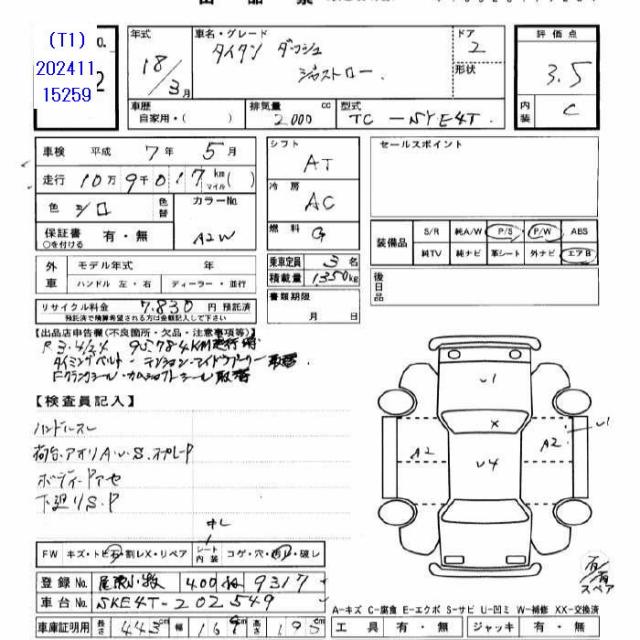 (T1)
202411
15259
年式
18/3月
車名・グレード
タイタン ダッシュ
ジャストロー.
ドア
2
形状
評価点
3.5
内装
C
車歴
自家用・( )
排気量 cc
2000
型式
TC-SYE4T
車検 平成 7年 5月
走行 10万9千017km マイル( )
色 シロ 色替 カラーNo.
A2W
保証書 有・無
○を付ける
外車 モデル年式 年
ハンドル 左・右 ディーラー・並行
リサイクル料金 7.830 円 預託済
預託済で精算希望される方は金額記入して下さい
シフト AT
冷房 AC
燃料 G
乗車定員 3名
積載量 1350kg
書類期限 月 日
セールスポイント
装備品 S/R 純A/W P/S P/W ABS
純TV 純ナビ 革シート 外ナビ エアB
後日品
【出品店申告欄(不良箇所・欠品・注意事項等)】
R3.4/24 95784KM走行時
タイミングベルト・テンション・アイドラプーリー 取替
Fクランクシール・カムシャフトシール取替
【検査員記入】
ハンドルスレ
荷台・アオリA.U.S.スプレーP
ボディーPアセ
下廻りS.P
FW キズ・トビ石・割レX・リペア シート内装 コゲ・穴・切レ・破レ
登録No. 尾張小牧 400 9317
車台No. SKE4T-202549
車庫証明用 長さ 443cm 幅 169cm 高さ 195cm
U1
X
U4
A2
A2
U1
有/有
スペア
A-キズ C-腐食 E-エクボ S-サビ U-凹ミ W-補修 XX-交換済
工具 有・無 ジャッキ 有・無